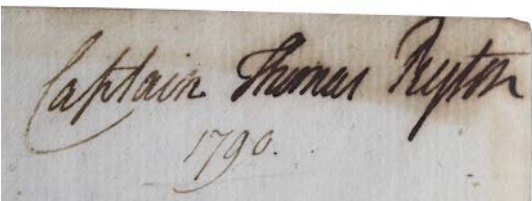 Captain Thomas Peyton
1790.